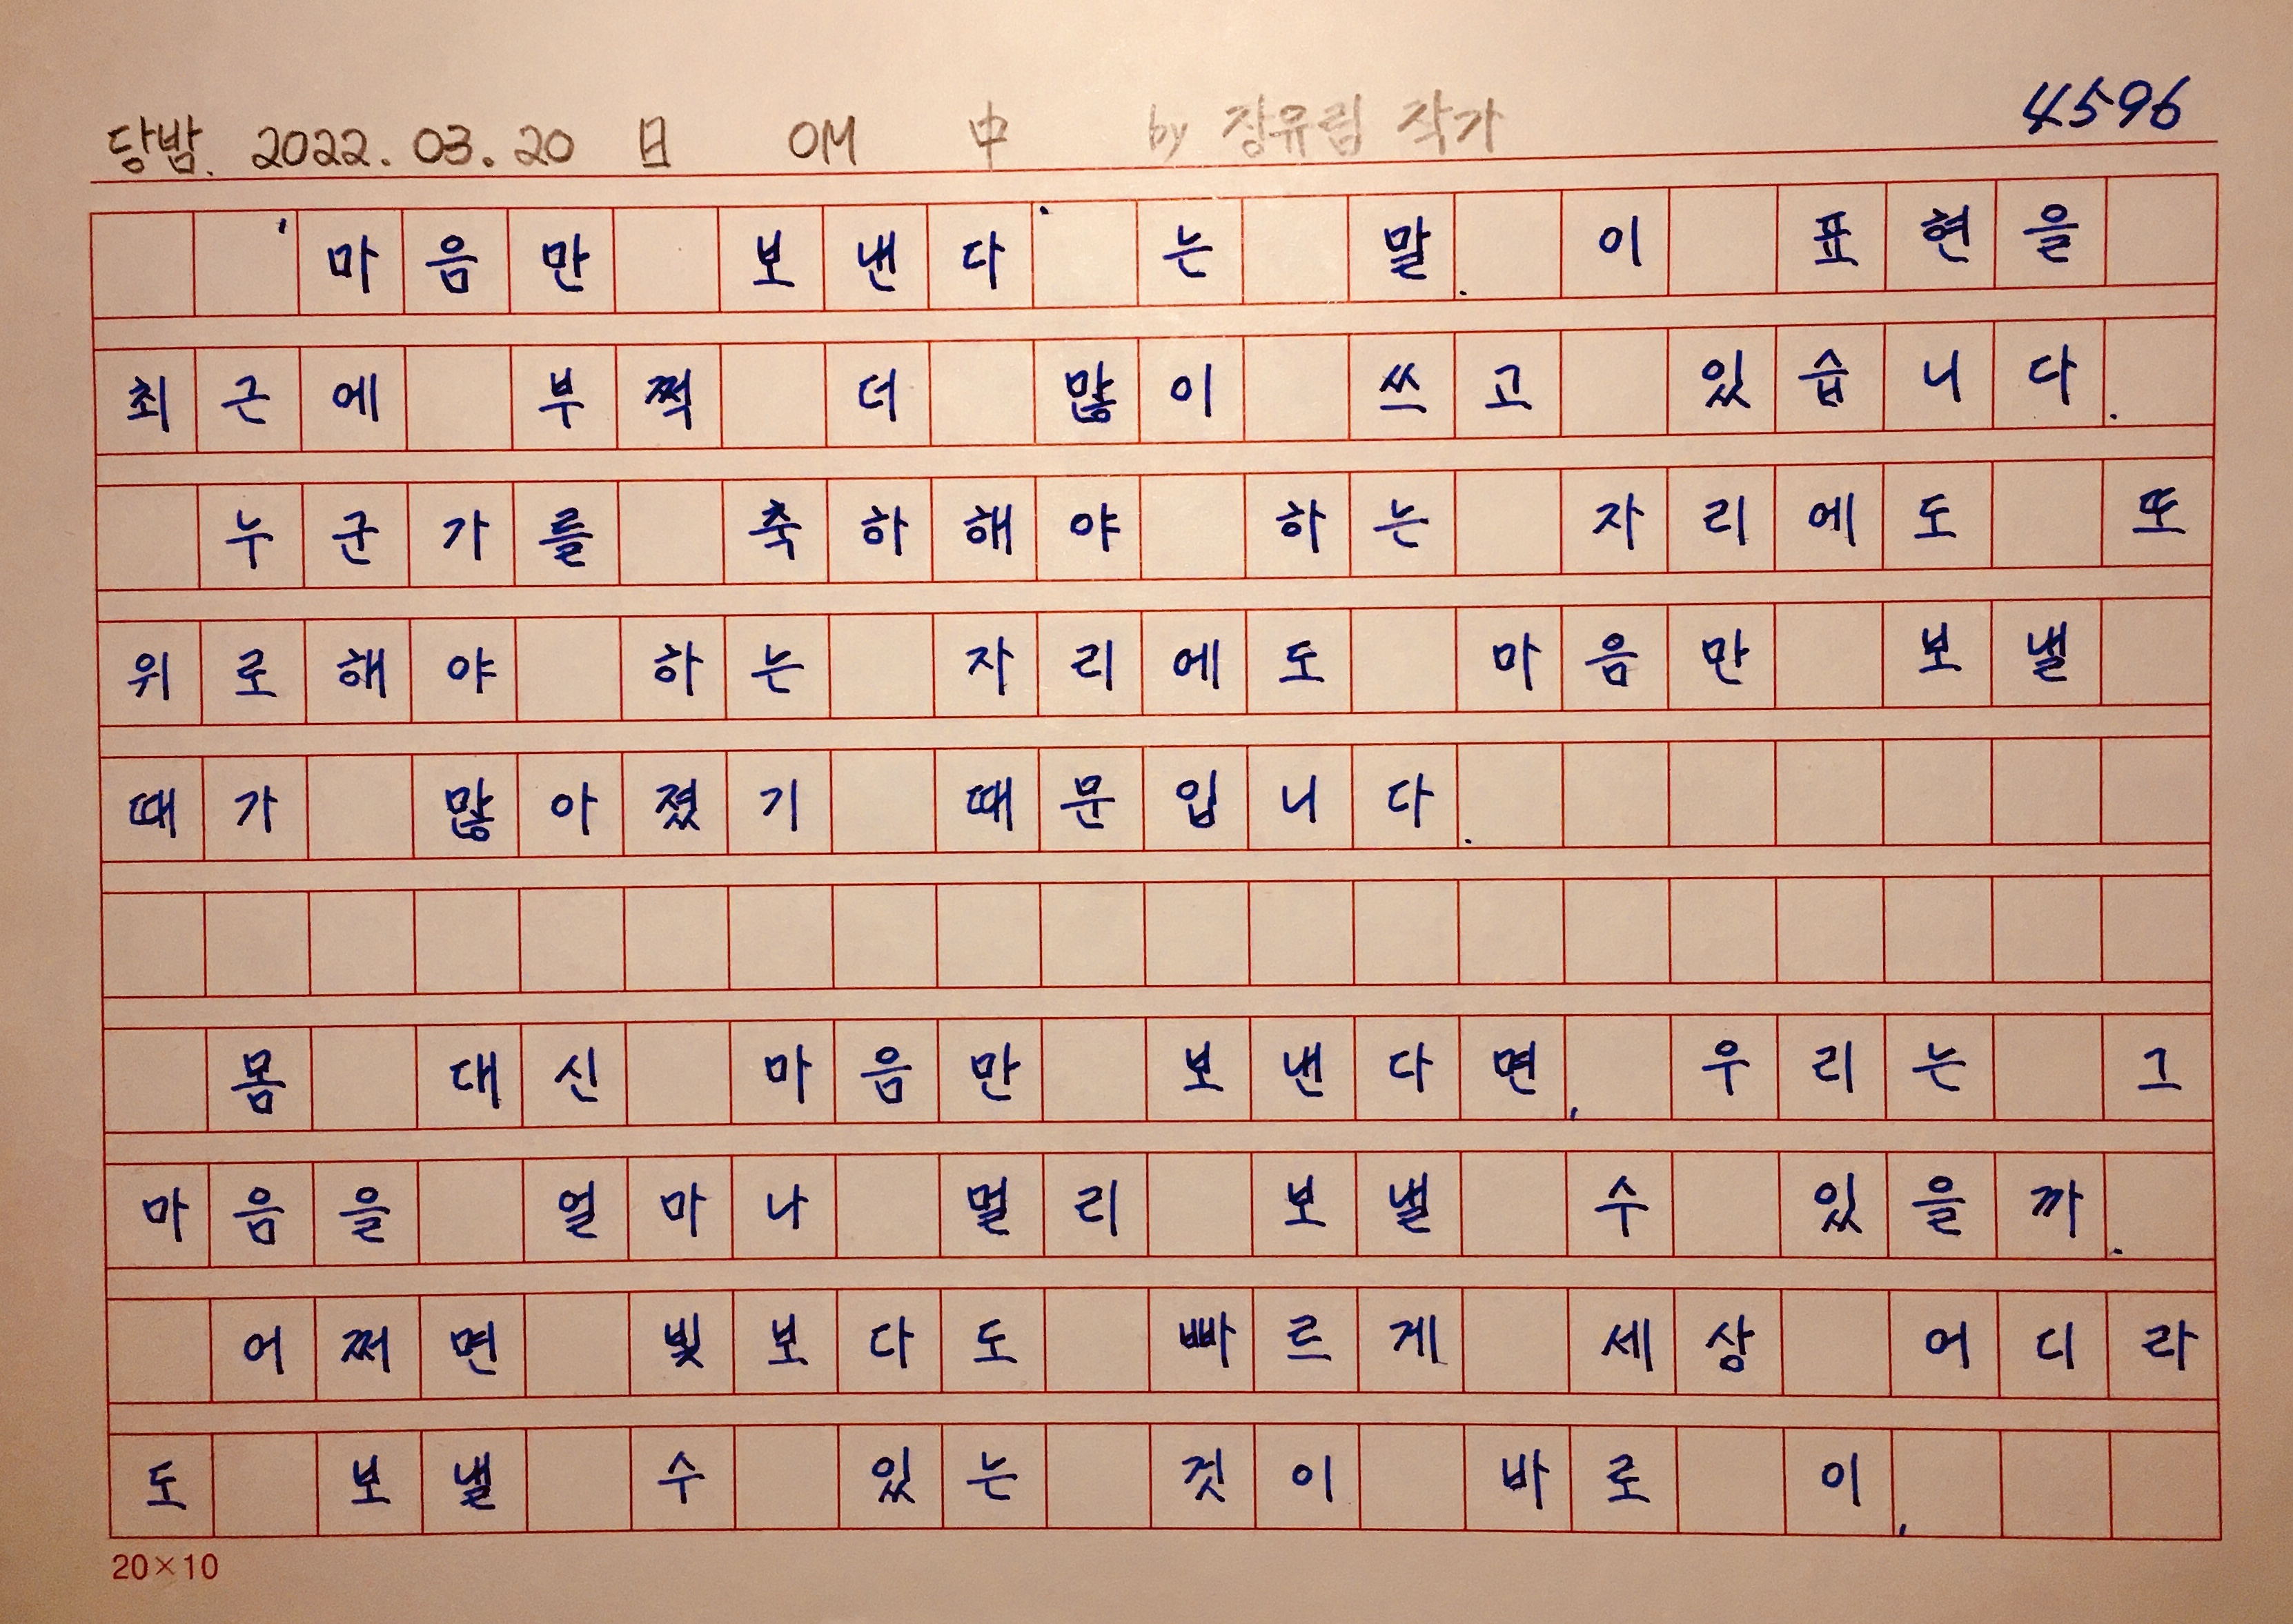 당밤. 2022. 03. 20 日 OM 中 by 장유림 작가 4596
'마음만 보낸다'는 말. 이 표현을
최근에 부쩍 더 많이 쓰고 있습니다.
누군가를 축하해야 하는 자리에도 또
위로해야 하는 자리에도 마음만 보낼
때가 많아졌기 때문입니다.
몸 대신 마음만 보낸다면, 우리는 그
마음을 얼마나 멀리 보낼 수 있을까.
어쩌면 빛보다도 빠르게 세상 어디라
도 보낼 수 있는 것이 바로 이,
20×10